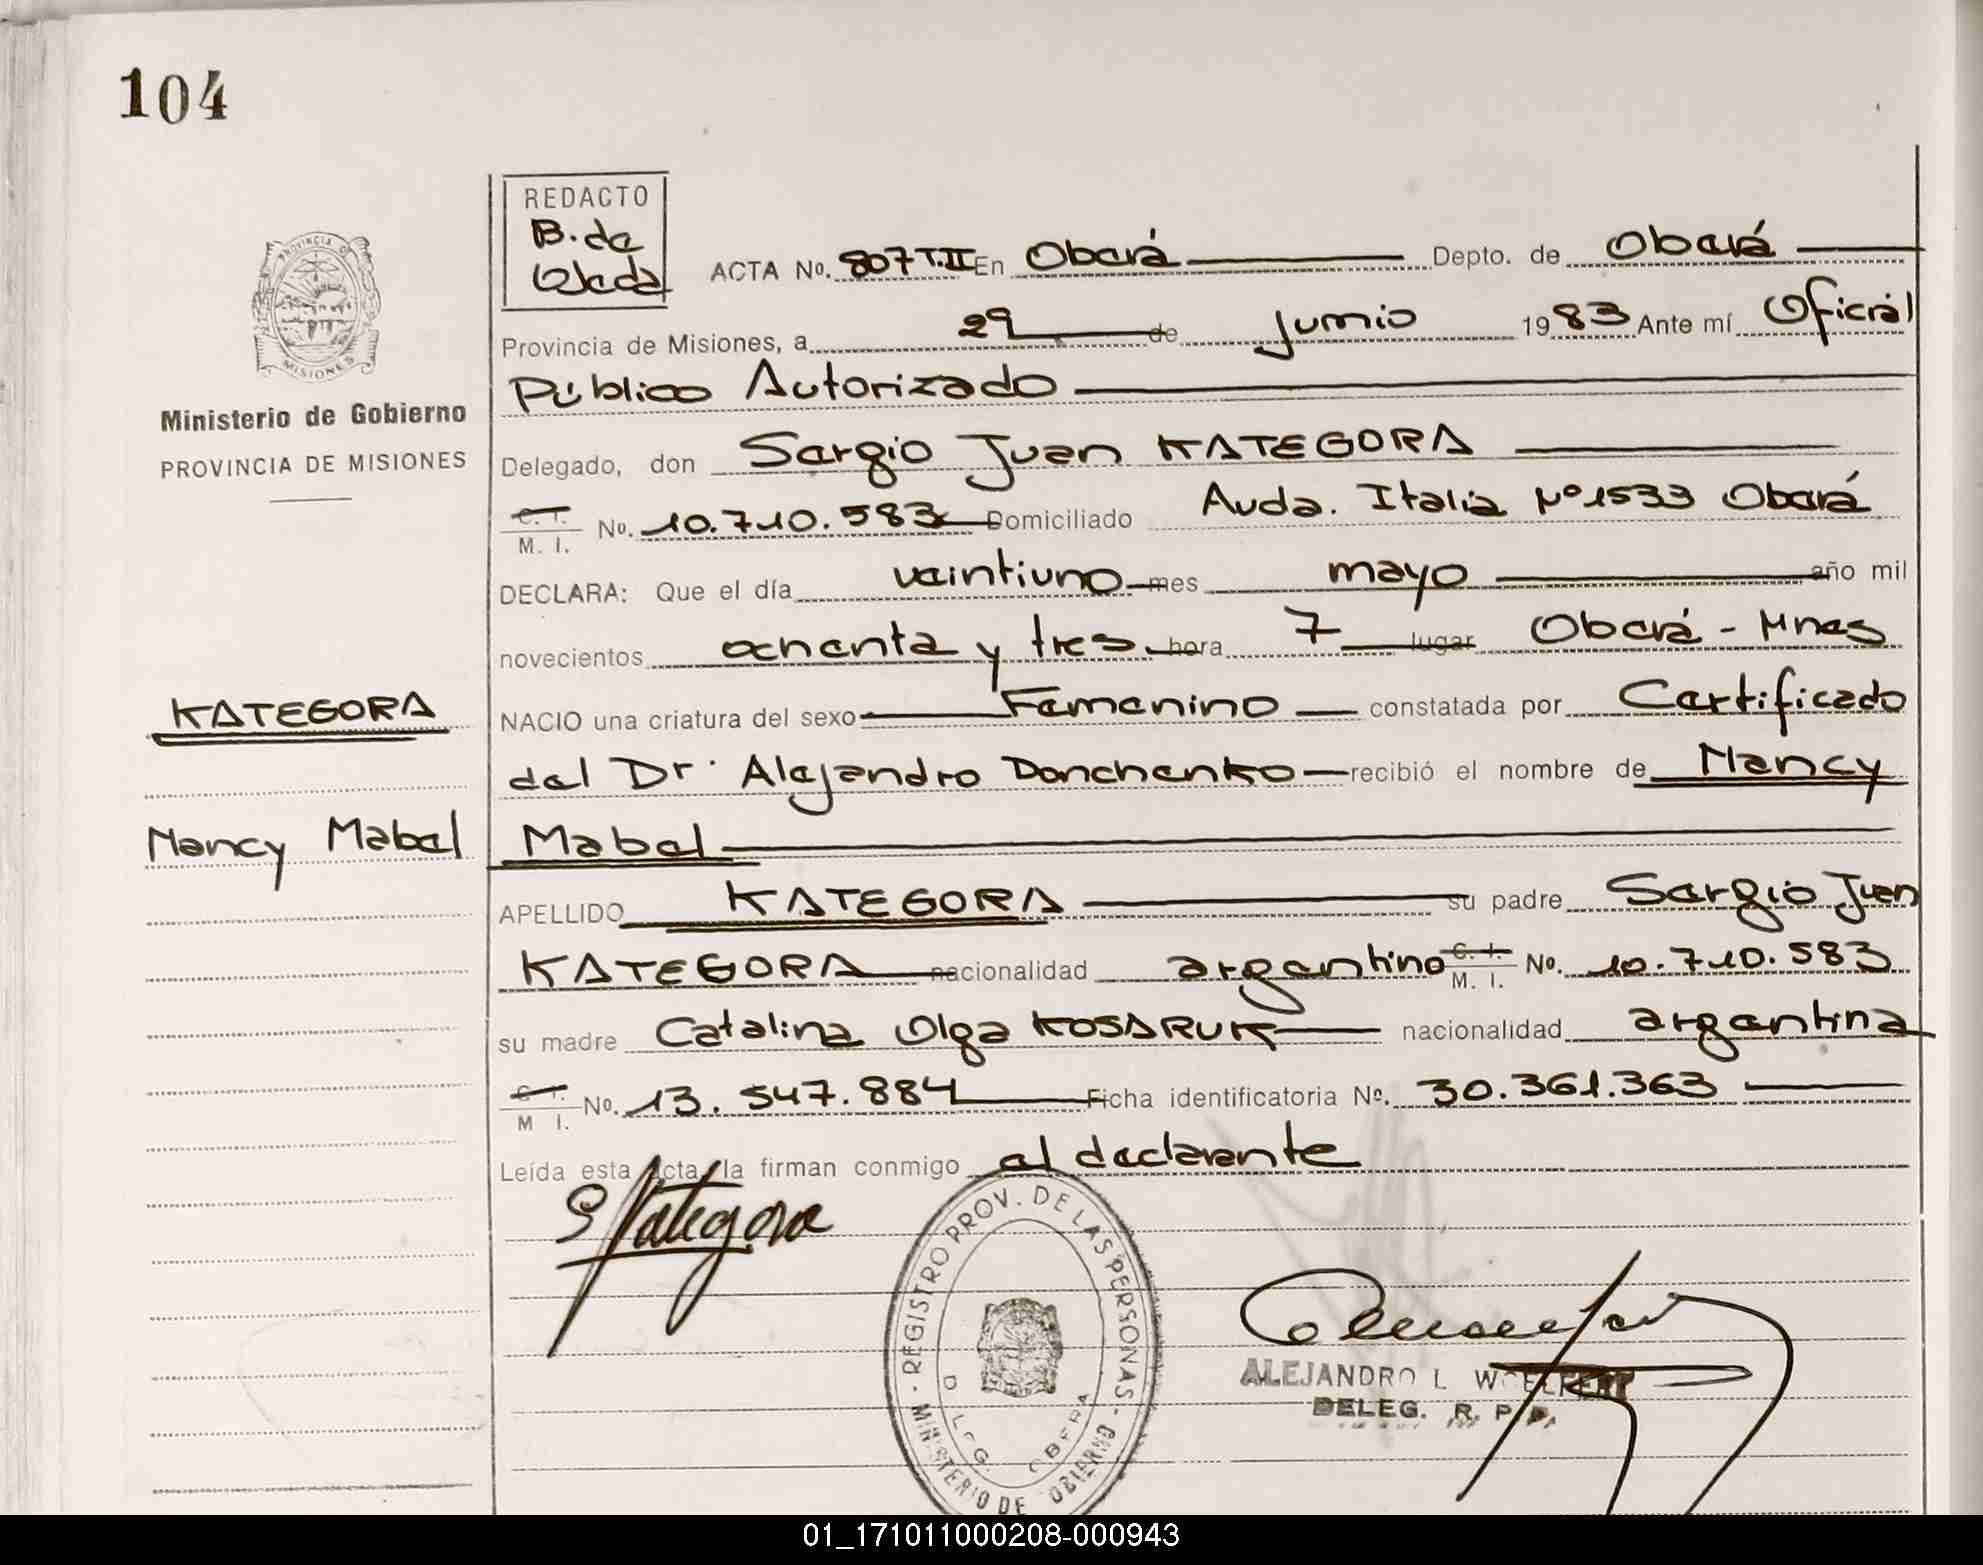 104
REDACTO
B. de
Oleda
ACTA No. 807 T.II En Oberá Depto. de Oberá
Provincia de Misiones, a 29 de Junio 1983 Ante mí Oficial
Público Autorizado
Ministerio de Gobierno
PROVINCIA DE MISIONES
Delegado, don Sergio Juan KATEGORA
C. I.
M. I. No. 10.710.583 Domiciliado Avda. Italia Nº 1533 Oberá
DECLARA: Que el día veintiuno mes mayo año mil
novecientos ochenta y tres hora 7 lugar Oberá - Mnes
KATEGORA
NACIO una criatura del sexo Femenino constatada por Certificado
del Dr. Alejandro Donchenko recibió el nombre de Nancy
Nancy Mabel
Mabel
APELLIDO KATEGORA su padre Sergio Juan
KATEGORA nacionalidad argentino C. I. M. I. No. 10.710.583
su madre Catalina Olga KOSARUK nacionalidad argentina
C. I.
M. I. No. 13.547.884 Ficha identificatoria No. 30.361.363
Leída esta Acta, la firman conmigo el declarante
S Kategora
REGISTRO PROV. DE LAS PERSONAS - MINISTERIO DE GOBIERNO
DELEG. OBERA
PROVINCIA DE MISIONES
ALEJANDRO L
DELEG. R. P. P.
01_171011000208-000943